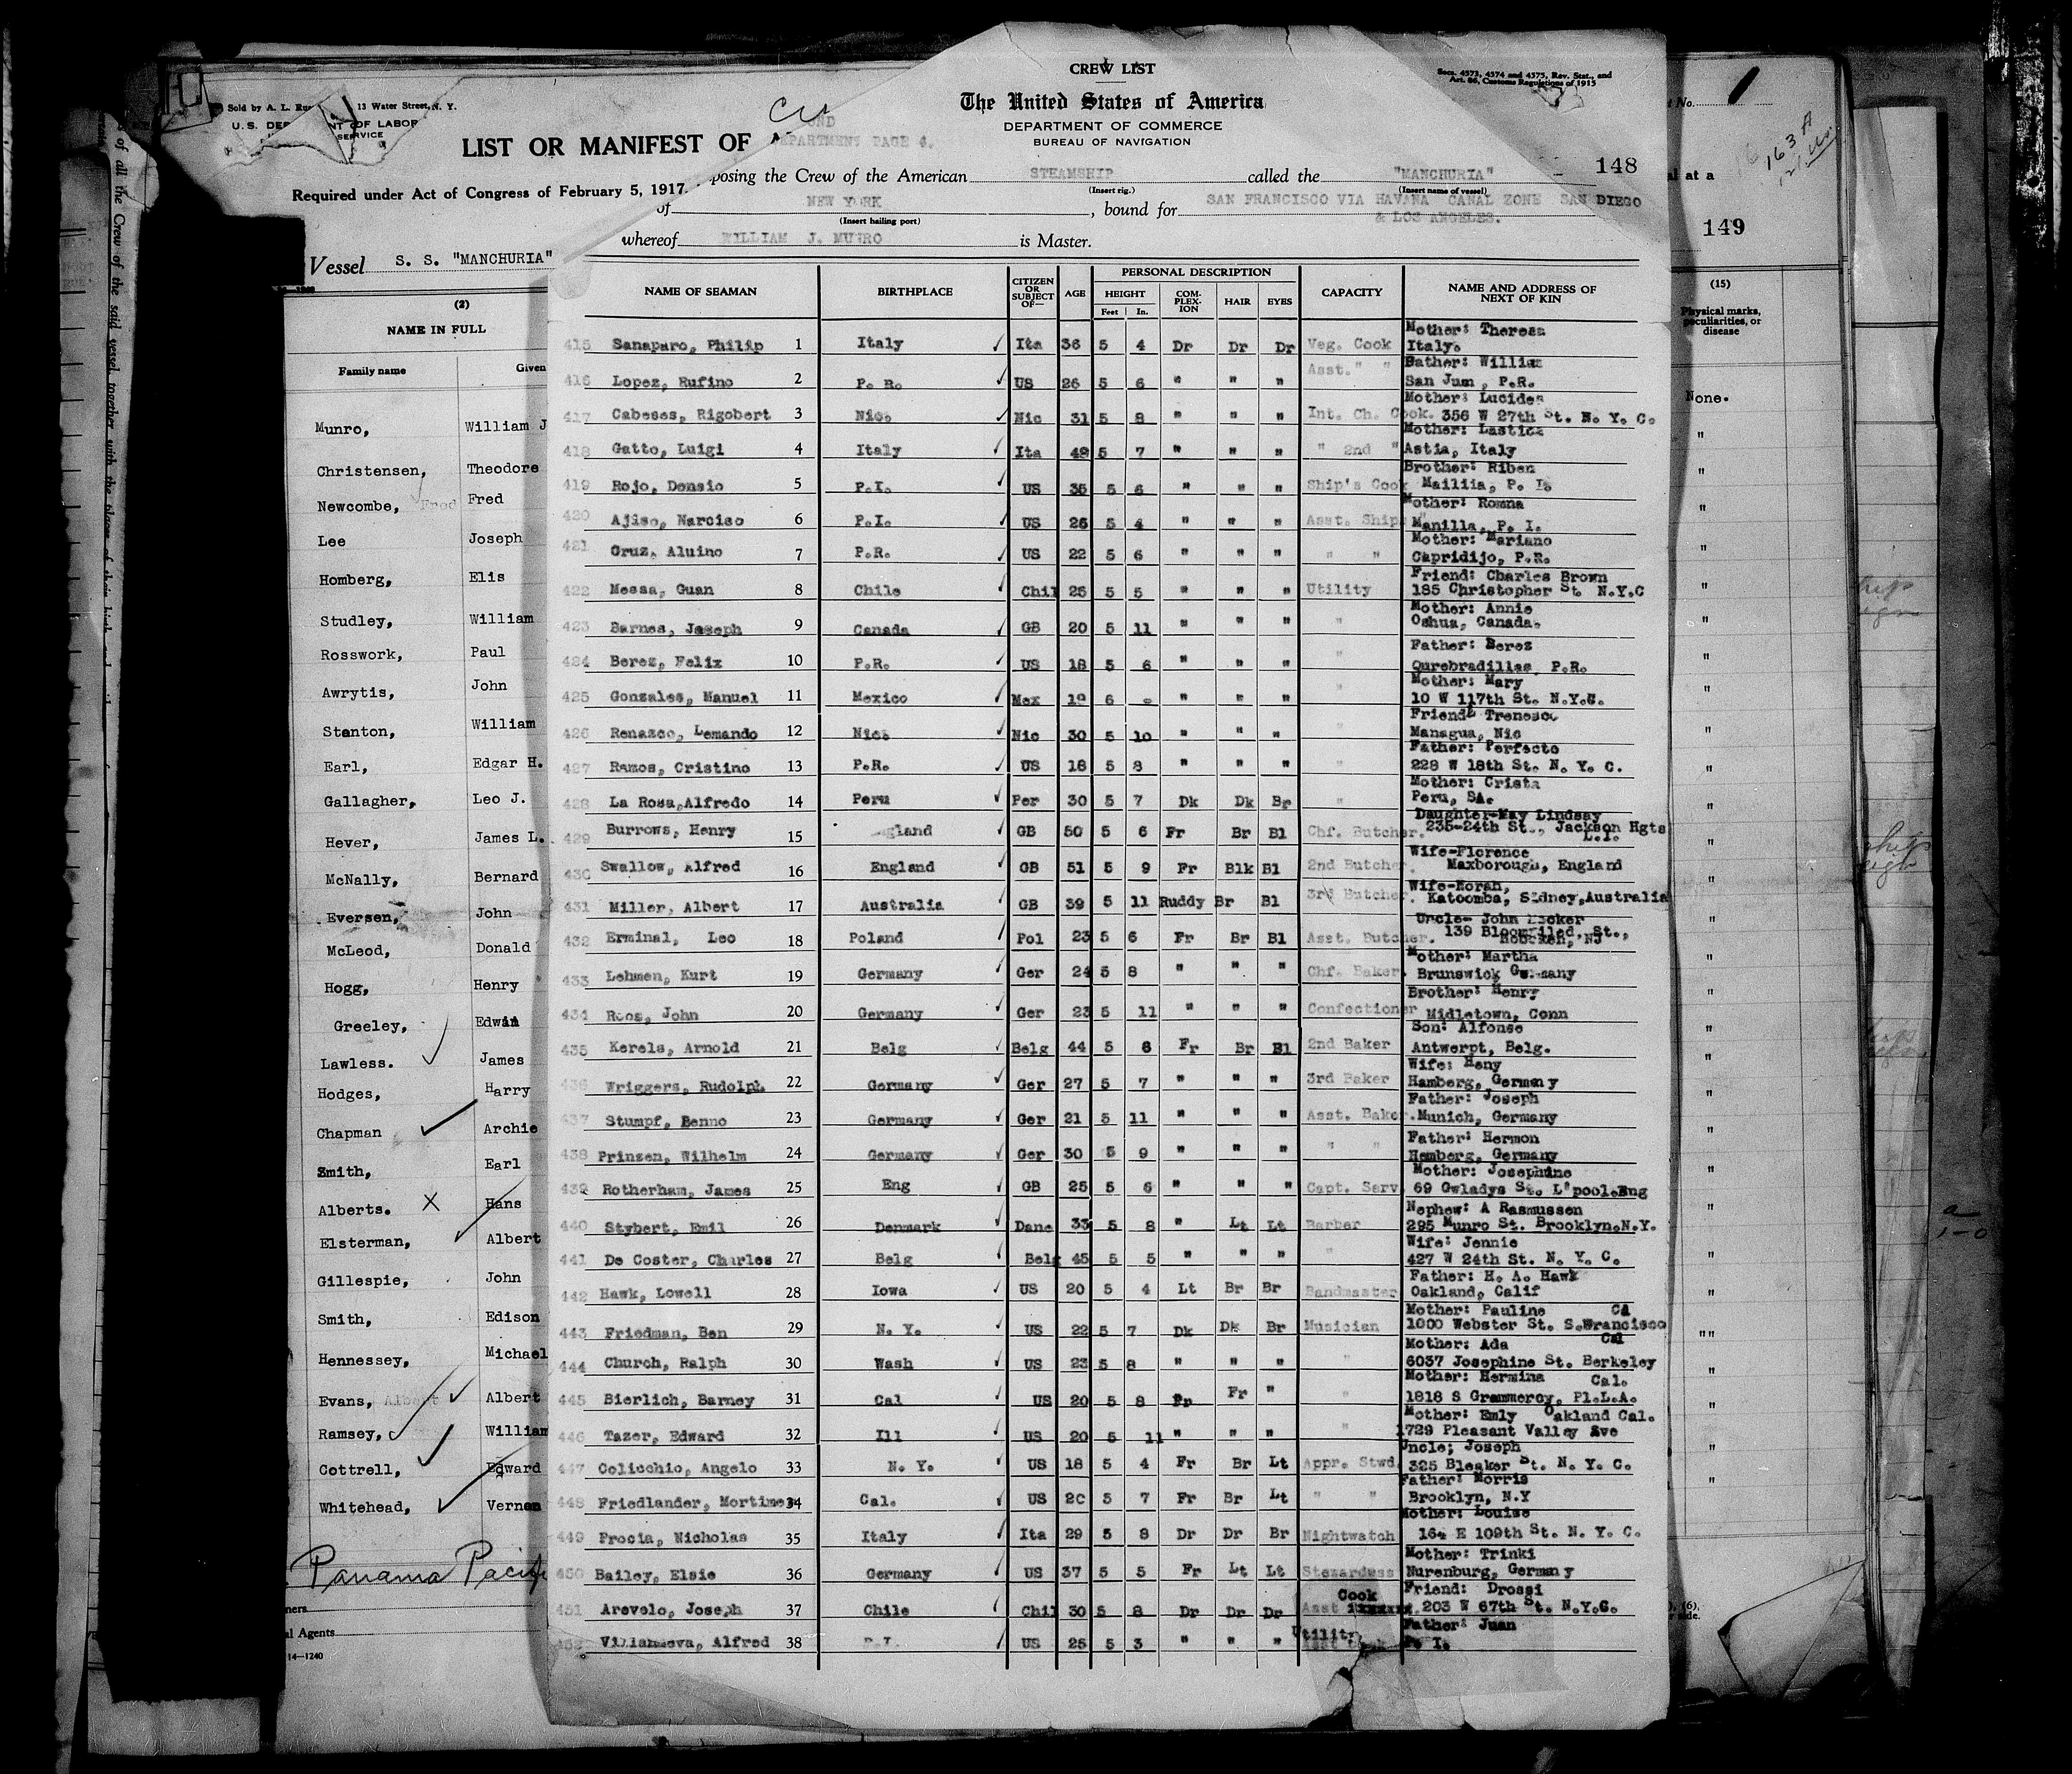 CREW LIST
Secs. 4573, 4574 and 4575, Rev. Stat., and
Art. 86, Customs Regulations of 1915
The United States of America
DEPARTMENT OF COMMERCE
BUREAU OF NAVIGATION
148
posing the Crew of the American STEAMSHIP called the "MANCHURIA"
(Insert rig.) (Insert name of vessel)
of NEW YORK, bound for SAN FRANCISCO VIA HAVANA CANAL ZONE SAN DIEGO
(Insert hailing port) & LOS ANGELES.
whereof WILLIAM J. MUNRO is Master.
Sold by A. L. 13 Water Street, N. Y.
LIST OR MANIFEST OF
DEPARTMENT PAGE
Required under Act of Congress of February 5, 1917.
Vessel S. S. "MANCHURIA"
(2)
NAME IN FULL
Family name Given
Munro, William J
Christensen, Theodore
Newcombe, Fred
Lee Joseph
Homberg, Elis
Studley, William
Rosswork, Paul
Awrytis, John
Stanton, William
Earl, Edgar H.
Gallagher, Leo J.
Hever, James L.
McNally, Bernard
Eversen, John
McLeod, Donald
Hogg, Henry
Greeley, Edwin
Lawless. James
Hodges, Harry
Chapman Archie
Smith, Earl
Alberts. X Hans
Elsterman, Albert
Gillespie, John
Smith, Edison
Hennessey, Michael
Evans, Albert
Ramsey, William
Cottrell, Edward
Whitehead, Vernon
Panama Pacif
14—1240
NAME OF SEAMAN BIRTHPLACE CITIZEN OR SUBJECT OF— AGE PERSONAL DESCRIPTION CAPACITY NAME AND ADDRESS OF NEXT OF KIN
HEIGHT COMPLEXION HAIR EYES
Feet In.
415 Sanaparo, Philip 1 Italy Ita 36 5 4 Dr Dr Dr Veg. Cook Mother: Theresa Italy.
416 Lopez, Rufino 2 P. R. US 26 5 6 " " " Asst. " " Father: William San Jum, P.R.
417 Cabeses, Rigobert 3 Nic. Nic 31 5 8 " " " Int. Ch. Cook. Mother: Lucides 356 W 27th St. N. Y. C.
418 Gatto, Luigi 4 Italy Ita 49 5 7 " " " " 2nd " Mother: Astia, Italy
419 Rojo, Densio 5 P.I. US 35 5 6 " " " Ship's Cook Brother: Riben Mailiia, P. I.
420 Ajiso, Narciso 6 P.I. US 26 5 4 " " " Asst. Ship Mother: Romna Manilla, P. I.
421 Cruz, Aluino 7 P.R. US 22 5 6 " " " " " Mother: Mariano Capridijo, P.R.
422 Messa, Guan 8 Chile Chil 25 5 5 " " " Utility Friend: Charles Brown 185 Christopher St. N.Y.C
423 Barnes, Joseph 9 Canada GB 20 5 11 " " " " Mother: Annie Oshua, Canada.
424 Berez, Felix 10 P.R. US 18 5 6 " " " " Father: Berez Qurebradillas P.R.
425 Gonzales, Manuel 11 Mexico Mex 19 6 - " " " " Mother: Mary 10 W 117th St. N.Y.C.
426 Renazco, Lemando 12 Nic. Nic 30 5 10 " " " " Friend: Trenesco Managua, Nic
427 Ramos, Cristino 13 P.R. US 18 5 8 " " " " Father: Perfecto 228 W 18th St. N. Y. C.
428 La Rosa, Alfredo 14 Peru Per 30 5 7 Dk Dk Br " Mother: Crista Peru, SA.
429 Burrows, Henry 15 gland GB 50 5 6 Fr Br Bl Chf. Butcher. Daughter-May Lindsay 235-24th St., Jackson Hgts L.I.
430 Swallow, Alfred 16 England GB 51 5 9 Fr Blk Bl 2nd Butcher. Wife-Florence Maxborough, England
431 Miller, Albert 17 Australia GB 39 5 11 Ruddy Br Bl 3rd Butcher. Wife-Norah, Katoomba, Sidney, Australia
432 Erminal, Leo 18 Poland Pol 23 5 6 Fr Br Bl Asst. Butcher. Uncle- John 139 Bloomfiled, St., Hobcken, NJ
433 Lehmen, Kurt 19 Germany Ger 24 5 8 " " " Chf. Baker. Mother: Martha Brunswick Germany
434 Roos, John 20 Germany Ger 23 5 11 " " " Confectioner Brother: Henry Midletown, Conn
435 Kerels, Arnold 21 Belg Belg 44 5 6 Fr Br Bl 2nd Baker Son: Alfonse Antwerpt, Belg.
436 Wriggers, Rudolph 22 Germany Ger 27 5 7 " " " 3rd Baker Wife: Heny Hamberg, Germany
437 Stumpf, Benno 23 Germany Ger 21 5 11 " " " Asst. Baker. Father: Joseph Munich, Germany
438 Prinzen, Wilhelm 24 Germany Ger 30 5 9 " " " " " Father: Hermon Hemberg, Germany
439 Rotherham, James 25 Eng GB 25 5 6 " " " Capt. Serv. Mother: Josephine 69 Gwladys St. L'pool.Eng
440 Stybert, Emil 26 Denmark Dane 33 5 8 " Lt Lt Barber Nephew: A Rasmussen 295 Munro St. Brooklyn.N.Y.
441 De Coster, Charles 27 Belg Belg 45 5 5 " " " " Wife: Jennie 427 W 24th St. N. Y. C.
442 Hawk, Lowell 28 Iowa US 20 5 4 Lt Br Br Bandmaster Father: H. A. Hawk Oakland, Calif
443 Friedman, Ben 29 N. Y. US 22 5 7 Dk Dk Br Musician Mother: Pauline 1000 Webster St. S.Wrancisco
444 Church, Ralph 30 Wash US 23 5 8 " " " " Mother: Ada Cal 6037 Josephine St. Berkeley
445 Bierlich, Barney 31 Cal US 20 5 8 Fr Fr " " Mother: Hermina Cal. 1818 S Grammercy, Pl.L.A.
446 Tazer, Edward 32 Ill US 20 5 11 " " " " Mother: Emly Oakland Cal. 1729 Pleasant Valley Ave
447 Colicchio, Angelo 33 N. Y. US 18 5 4 Fr Br Lt Appr. Stwd. Uncle; Joseph 325 Bleaker St. N. Y. C.
448 Friedlander, Mortimer 34 Cal. US 20 5 7 Fr Br Lt " " Father: Morris Brooklyn, N.Y
449 Procia, Nicholas 35 Italy Ita 29 5 8 Dr Dr Br Nightwatch Mother: Louise 164 E 109th St. N. Y. C.
450 Bailey, Elsie 36 Germany US 37 5 5 Fr Lt Lt Stewardess Mother: Trinki Nurenburg, Germany
451 Arevelo, Joseph 37 Chile Chil 30 5 8 Dr Dr Dr Cook Asst Friend: Drossi 203 W 67th St. N.Y.C.
452 Villanueva, Alfred 38 P.I. US 25 5 3 " " " Utility Father: Juan P. I.
1
163 A
149
(15)
Physical marks, peculiarities, or disease
None.